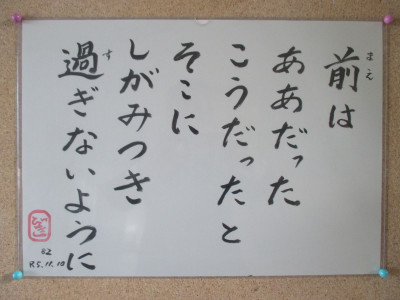 前は
ああだった
こうだったと
そこに
しがみつき
過ぎないように
82
R5.11.10